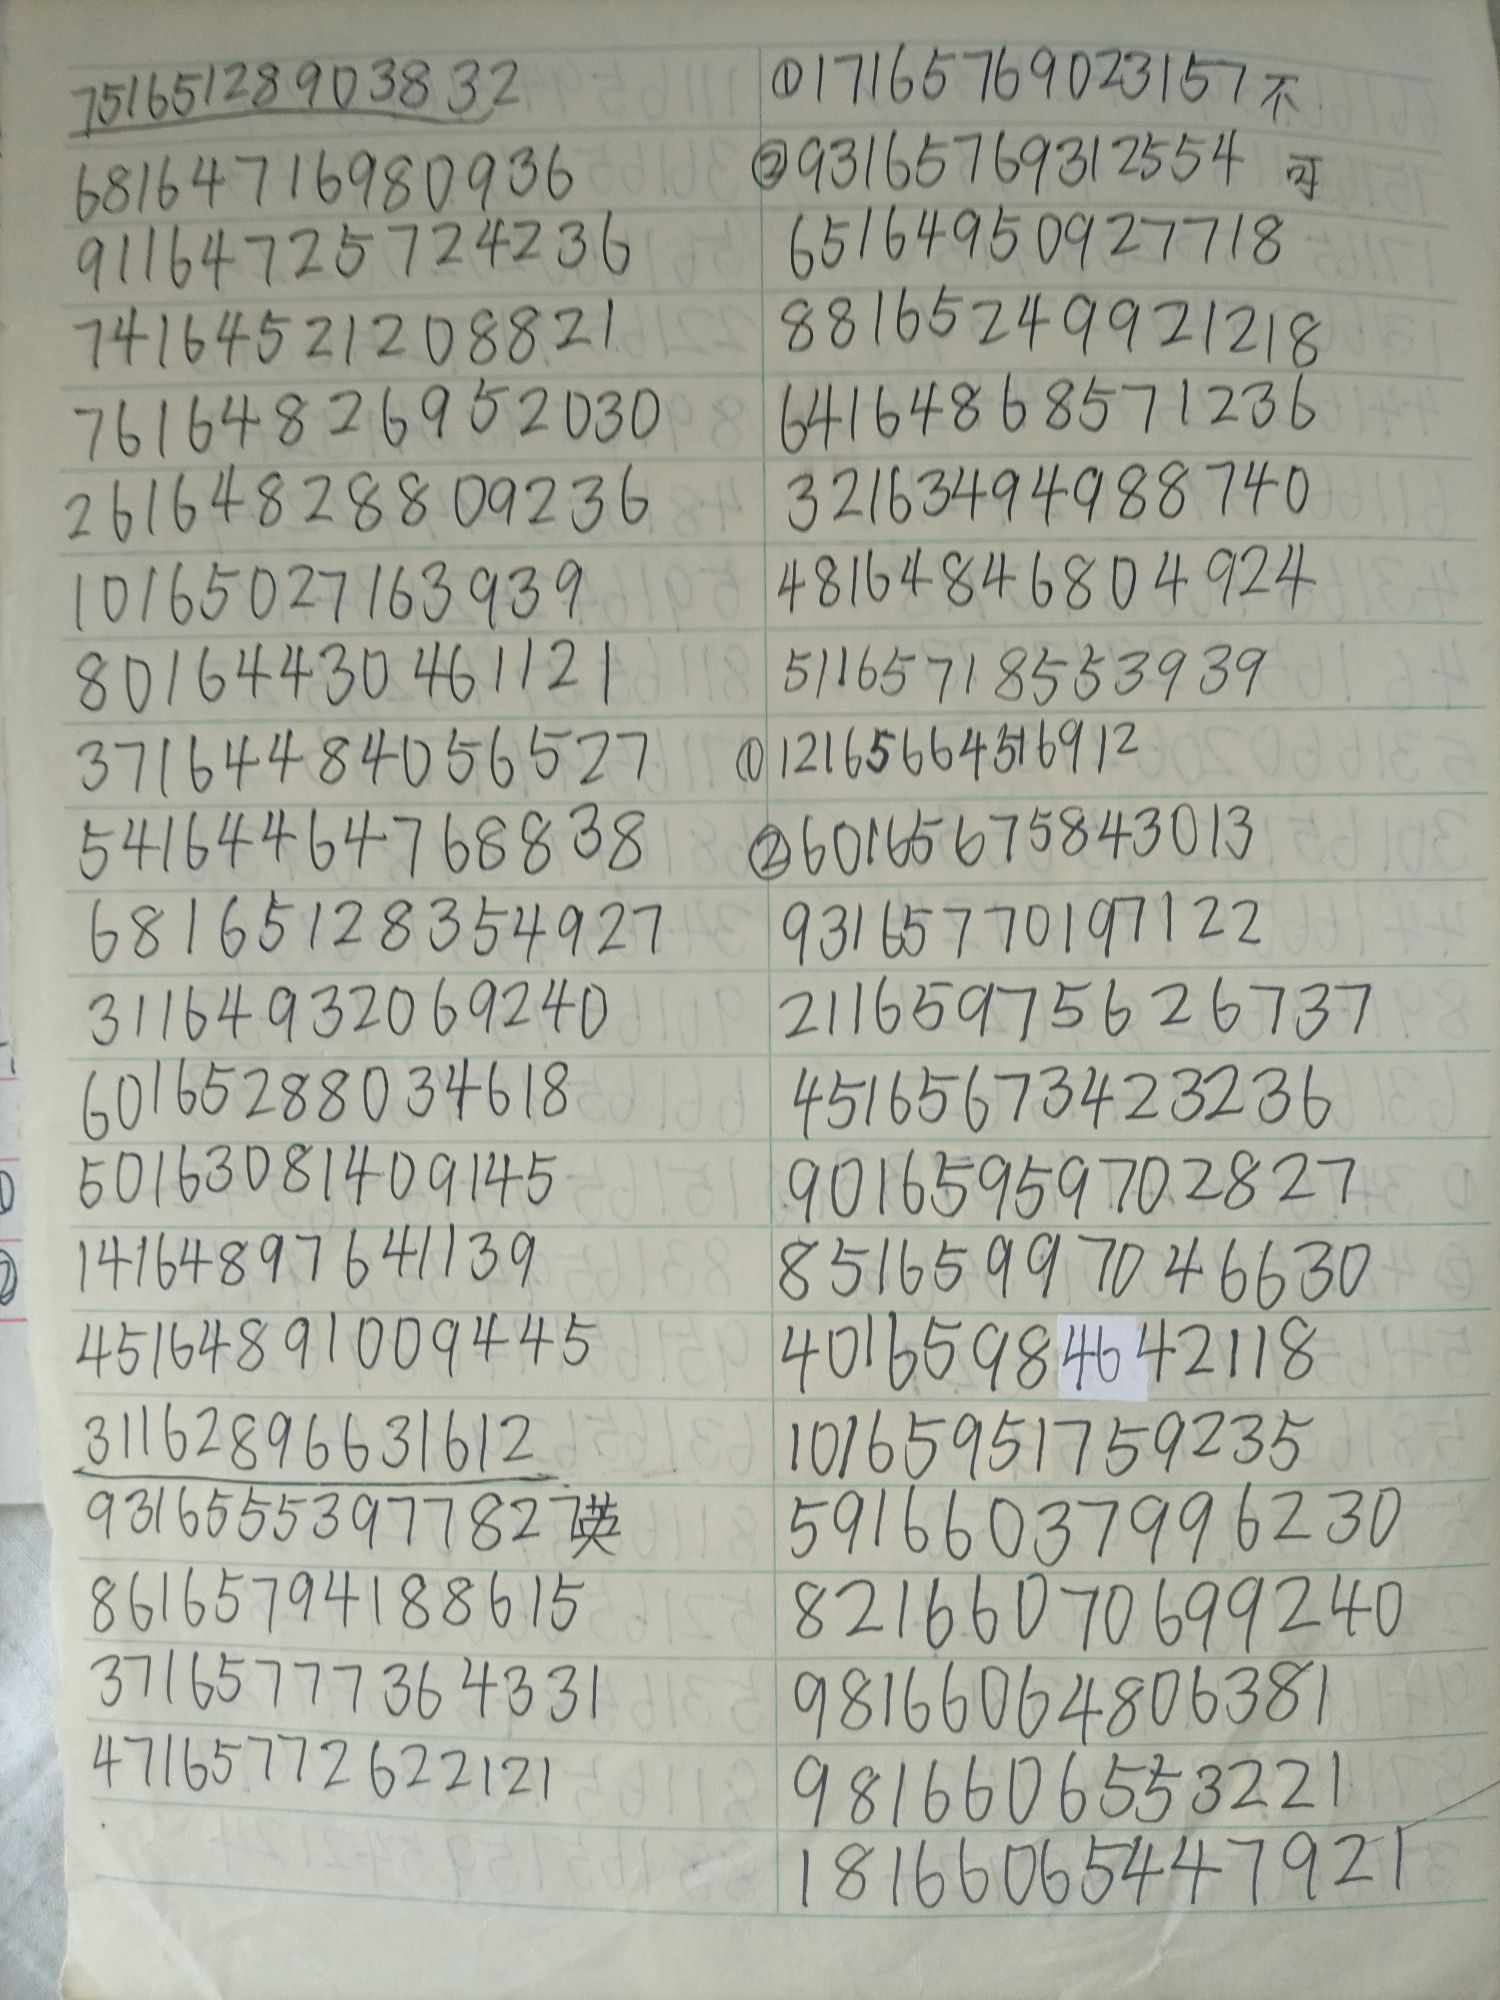 75165128903832
68164716980936
91164725724236
74164521208821
76164826952030
26164828809236
10165027163939
80164430461121
37164484056527
54164464768838
68165128354927
31164932069240
60165288034618
50163081409145
14164897641139
45164891009445
31162896631612
93165553977827英
86165794188615
37165777364331
47165772622121
①17165769023157不
②93165769312554可
65164950927718
88165249921218
64164868571236
32163494988740
48164846804924
51165718553939
①12165664516912
②60165675843013
93165770197122
21165975626737
45165673423236
90165959702827
85165997046630
40165984642118
10165951759235
59166037996230
82166070699240
98166064806381
98166065553221
18166065447921